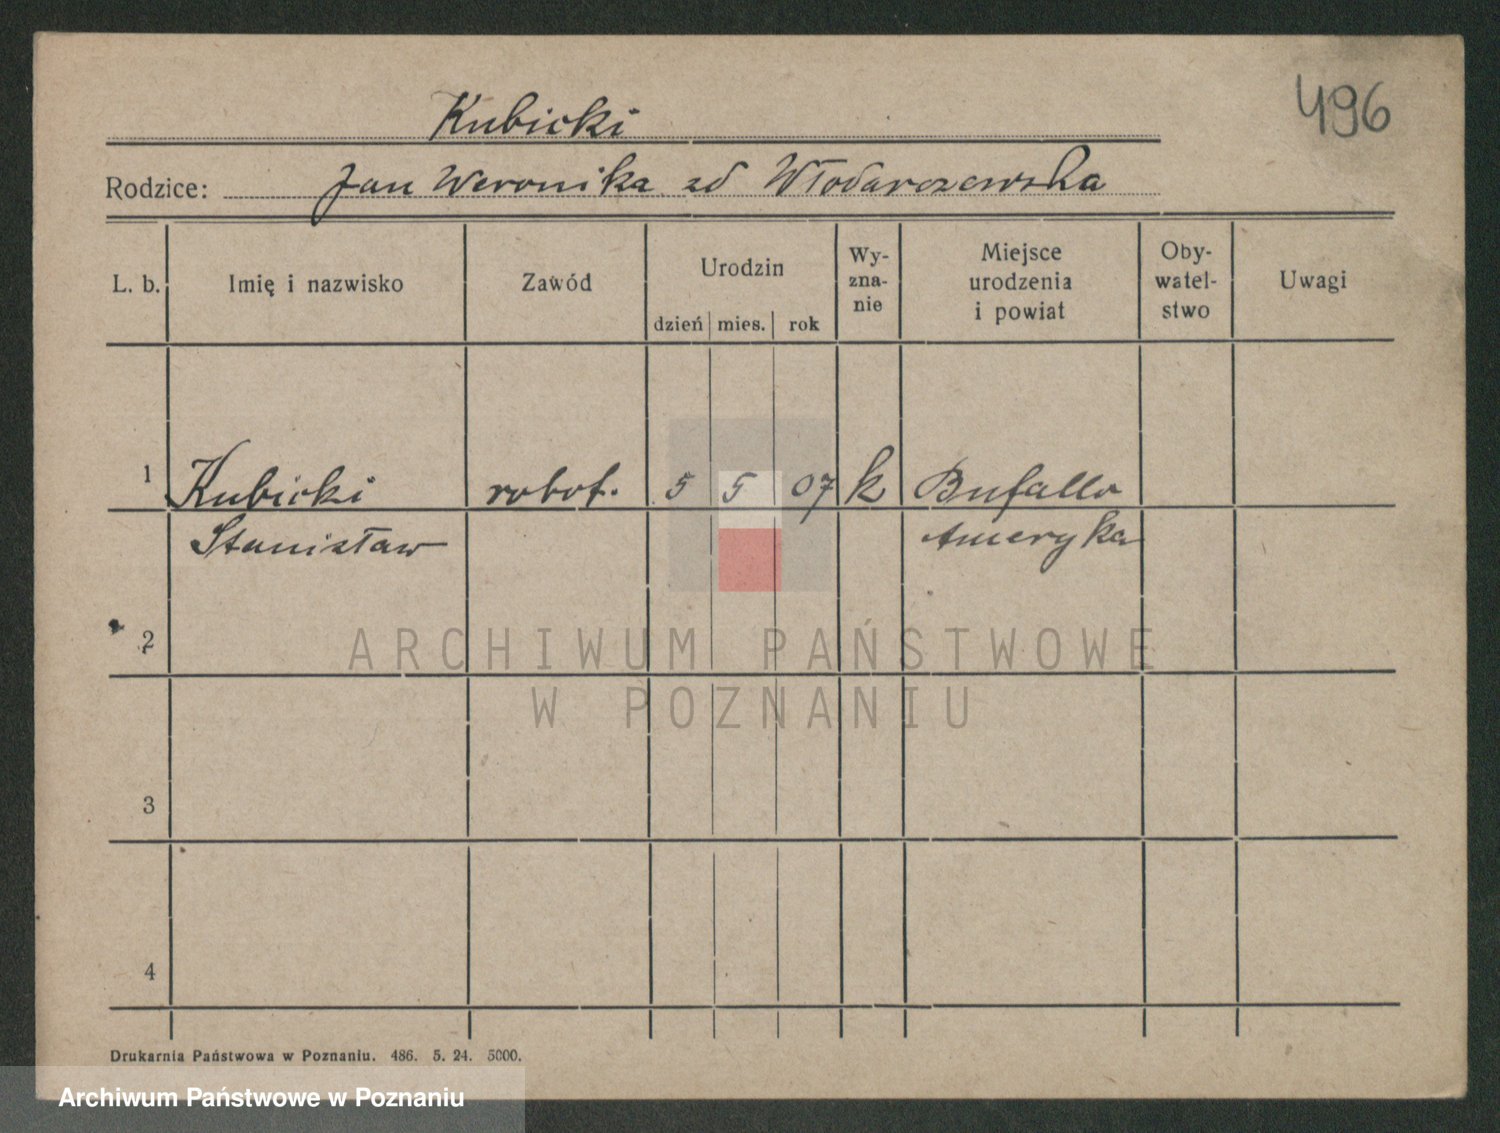 496
Kubicki
Rodzice: Jan Weronika zd Włodarczewska
L. b. Imię i nazwisko Zawód Urodzin Wy- Miejsce Oby- Uwagi
zna- urodzenia watel-
nie i powiat stwo
dzień mies. rok
1 Kubicki robot. 5 5 07 k Bufallo
Stanisław Ameryka
2
ARCHIWUM PAŃSTWOWE
W POZNANIU
3
4
Drukarnia Państwowa w Poznaniu. 486. 5. 24. 5000.
Archiwum Państwowe w Poznaniu